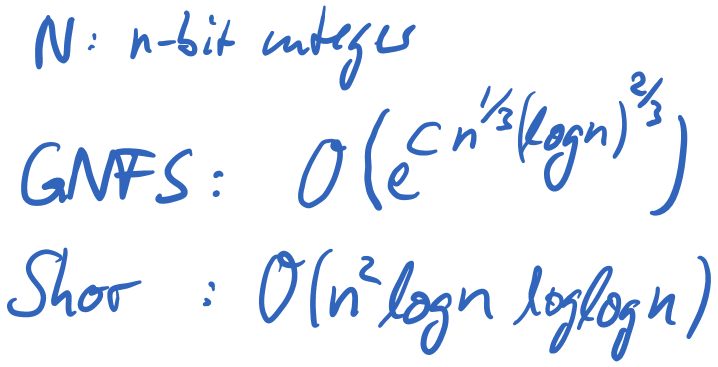 N: n-bit integer
GNFS: O(e^{C n^{1/3}(log n)^{2/3}})
Shor : O(n² log n log log n)